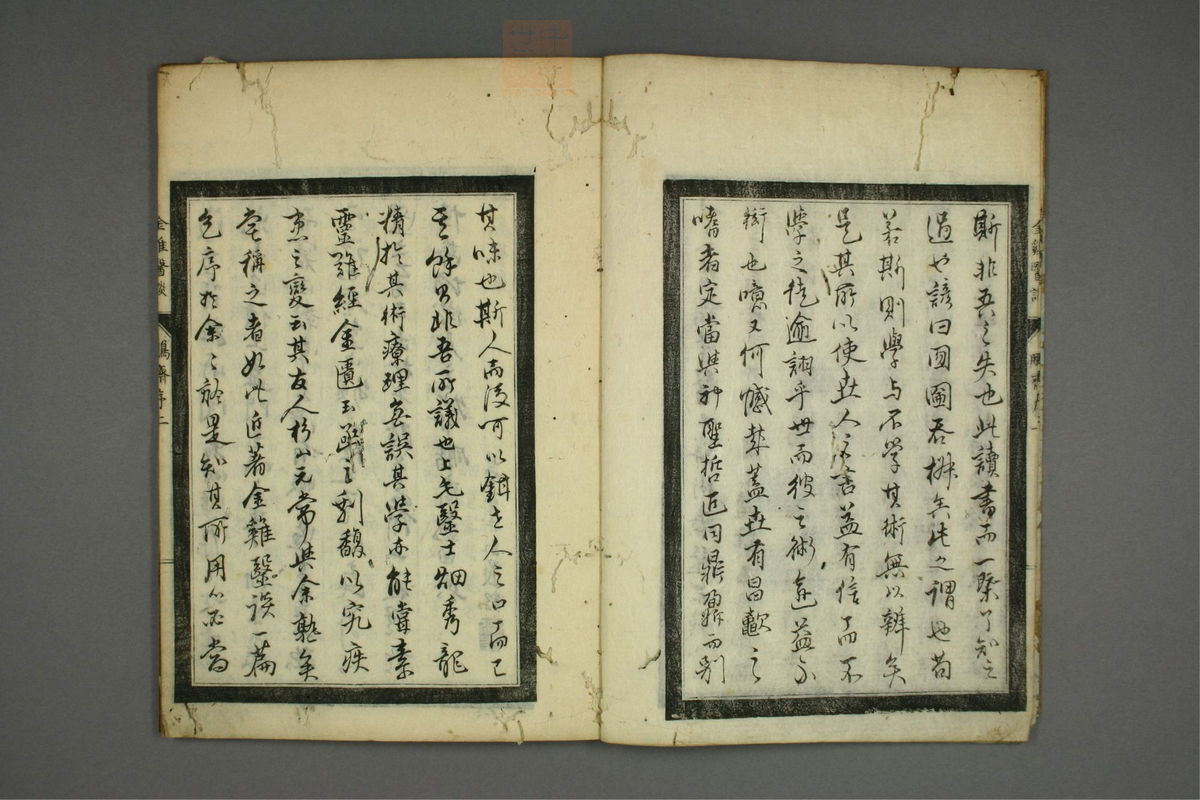 斯非吾之失也此讀書而一槩了知之
過也諺曰囫圇吞棗此之謂也苟
若斯則學与不学其術無以辨矣
是其所以使世人不言益有信而不
學之徒逾詡乎世而彼之術遂益不
衒也噫又何憾焉蓋世有昌歜之
嗜者定當與神聖哲匠同鼎鼐而别
其味也斯人而後可以餌世人之口而已
其餘另非吾所議也上毛醫士畑秀龍
精於其術療理無誤其学亦能嘗素
靈難經金匱玉函之剩馥以究疾
恙之變至其友人杉山元常與余熟矣
屢稱之者如此近著金雞醫談一篇
乞序於余余於是知其所用心必當
金雞醫談